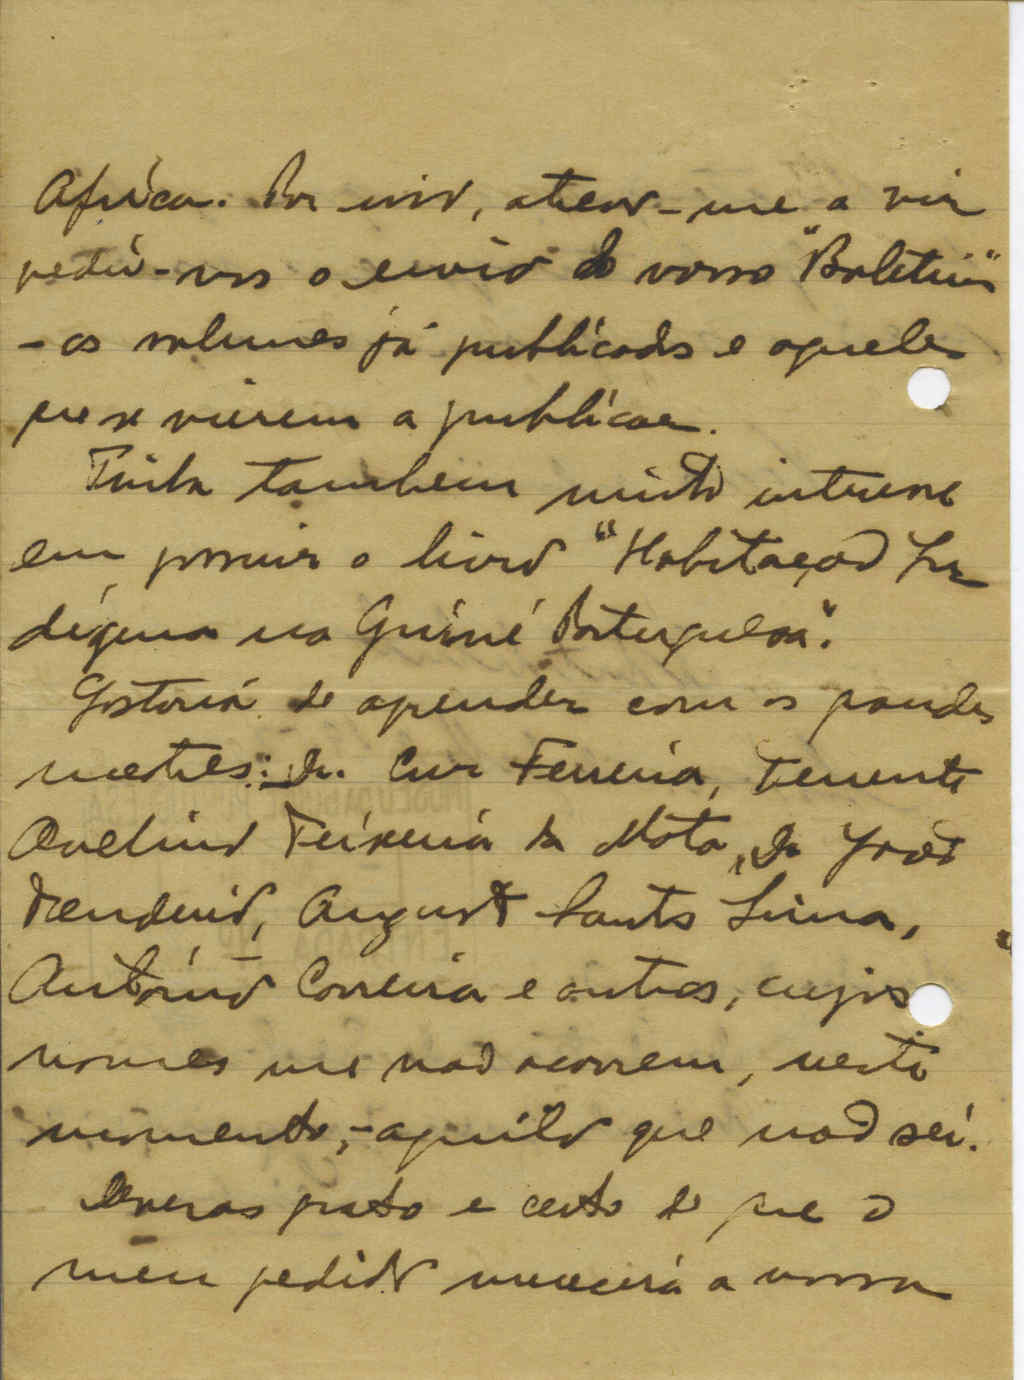 Africa. Por isso, atrevo-me a vir
pedir-vos o envio do vosso "Boletim"
- os volumes já publicados e aqueles
que se vierem a publicar.
Tinha tambem muito interesse
em possuir o livro "Habitação In
dígena na Guiné Portuguesa".
Gostaria de aprender com os grandes
mestres: Dr. Cruz Ferreira, Tenente
Avelino Teixeira da Mota, Dr
Tendeiro, Augusto Santos Lima,
António Correia e outros, cujos
nomes me não ocorrem, neste
momento, - aquilo que não sei.
Deveras grato e certo de que o
meu pedido merecerá a vossa